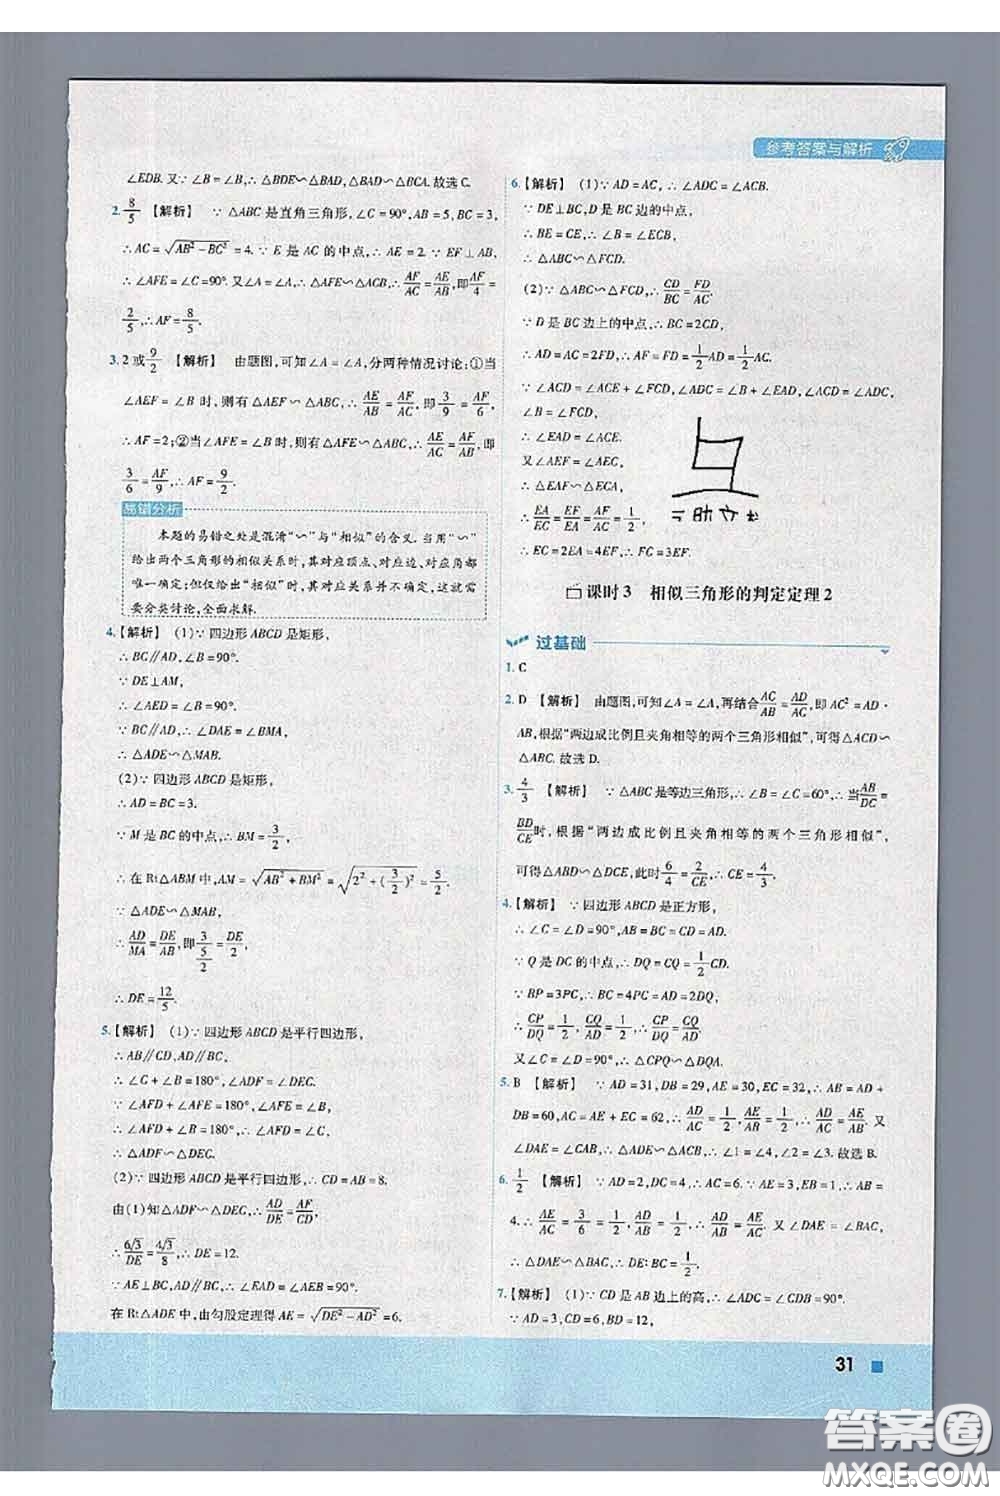 参考答案与解析
∠EDB. 又∵∠B=∠B,∴△BDE∽△BAD,△BAD∽△BCA. 故选C.
2. 8/5 【解析】 ∵△ABC是直角三角形,∠C=90°,AB=5,BC=3,
∴AC=√(AB²-BC²)=4. ∵E是AC的中点,∴AE=2. ∵EF⊥AB,
∴∠AFE=∠C=90°. 又∠A=∠A,∴△AFE∽△ACB,∴AF/AC=AE/AB,即AF/4=
2/5,∴AF=8/5.
3. 2或9/2 【解析】 由题图,可知∠A=∠A,分两种情况讨论:①当
∠AEF=∠B时,则有△AEF∽△ABC,∴AE/AB=AF/AC,即3/9=AF/6,
∴AF=2;②当∠AFE=∠B时,则有△AFE∽△ABC,∴AE/AC=AF/AB,即
3/6=AF/9,∴AF=9/2.
易错分析
本题的易错之处是混淆“∽”与“相似”的含义. 当用“∽”
给出两个三角形的相似关系时,其对应顶点、对应边、对应角都
唯一确定;但仅给出“相似”时,其对应关系并不确定,此时需
要分类讨论,全面求解.
4.【解析】 (1)∵四边形ABCD是矩形,
∴BC∥AD,∠B=90°.
∵DE⊥AM,
∴∠AED=∠B=90°.
∵BC∥AD,∴∠DAE=∠BMA,
∴△ADE∽△MAB.
(2)∵四边形ABCD是矩形,
∴AD=BC=3.
∵M是BC的中点,∴BM=3/2,
∴在Rt△ABM中,AM=√(AB²+BM²)=√(2²+(3/2)²)=5/2.
∵△ADE∽△MAB,
∴AD/MA=DE/AB,即3/(5/2)=DE/2,
∴DE=12/5.
5.【解析】 (1)∵四边形ABCD是平行四边形,
∴AB∥CD,AD∥BC,
∴∠C+∠B=180°,∠ADF=∠DEC.
∵∠AFD+∠AFE=180°,∠AFE=∠B,
∴∠AFD=∠C,
∴△ADF∽△DEC.
(2)∵四边形ABCD是平行四边形,∴CD=AB=8.
由(1)知△ADF∽△DEC,∴AD/DE=AF/CD,
∴6√3/DE=4√3/8,∴DE=12.
∵AE⊥BC,AD∥BC,∴∠EAD=∠AEB=90°.
在Rt△ADE中,由勾股定理得AE=√(DE²-AD²)=6.
6.【解析】 (1)∵AD=AC,∴∠ADC=∠ACB.
∵DE⊥BC,D是BC边的中点,
∴BE=CE,∴∠B=∠ECB,
∴△ABC∽△FCD.
(2)∵△ABC∽△FCD,∴CD/BC=FD/AC.
∵D是BC边上的中点,∴BC=2CD,
∴AD=AC=2FD,∴AF=FD=1/2AD=1/2AC.
∵∠ACD=∠ACE+∠FCD,∠ADC=∠B+∠EAD,∠ACD=∠ADC,
∠B=∠FCD,
∴∠EAD=∠ACE.
又∠AEF=∠AEC,
∴△EAF∽△ECA,
∴EA/EC=EF/EA=AF/AC=1/2,
∴EC=2EA=4EF,∴FC=3EF.
课时3 相似三角形的判定定理2
过基础
1. C
2. D 【解析】 由题图,可知∠A=∠A,再结合AC/AB=AD/AC,即AC²=AD·
AB,根据“两边成比例且夹角相等的两个三角形相似”,可得△ACD∽
△ABC. 故选D.
3. 4/3 【解析】 ∵△ABC是等边三角形,∴∠B=∠C=60°,∴当AB/DC=
BD/CE时,根据“两边成比例且夹角相等的两个三角形相似”,
可得△ABD∽△DCE,此时6/4=2/CE,∴CE=4/3.
4.【解析】 ∵四边形ABCD是正方形,
∴∠C=∠D=90°,BC=CD=AD.
∵Q是DC的中点,∴DQ=CQ=1/2CD.
∵BP=3PC,∴BC=4PC=AD=2DQ,
∴CP/DQ=1/2,CQ/AD=1/2,∴CP/DQ=CQ/AD.
又∠C=∠D=90°,∴△CPQ∽△DQA.
5. B 【解析】 ∵AD=31,DB=29,AE=30,EC=32,∴AB=AD+
DB=60,AC=AE+EC=62,∴AD/AC=1/2,AE/AB=1/2,∴AD/AC=AE/AB. 又
∠DAE=∠CAB,∴△ADE∽△ACB,∴∠1=∠4,∠2=∠3. 故选B.
6. 1/2 【解析】 ∵AD=2,DC=4,∴AC=6. ∵AE=3,EB=1,∴AB=
4. ∴AE/AC=3/6=1/2,AD/AB=1/2,∴AD/AB=AE/AC. 又△DAE=∠BAC,
∴△DAE∽△BAC,∴DE:BC=1/2.
7.【解析】 (1)∵CD是AB边上的高,∴∠ADC=∠CDB=90°.
∵AD=3,CD=6,BD=12,
31
答案圈
MXQE.COM